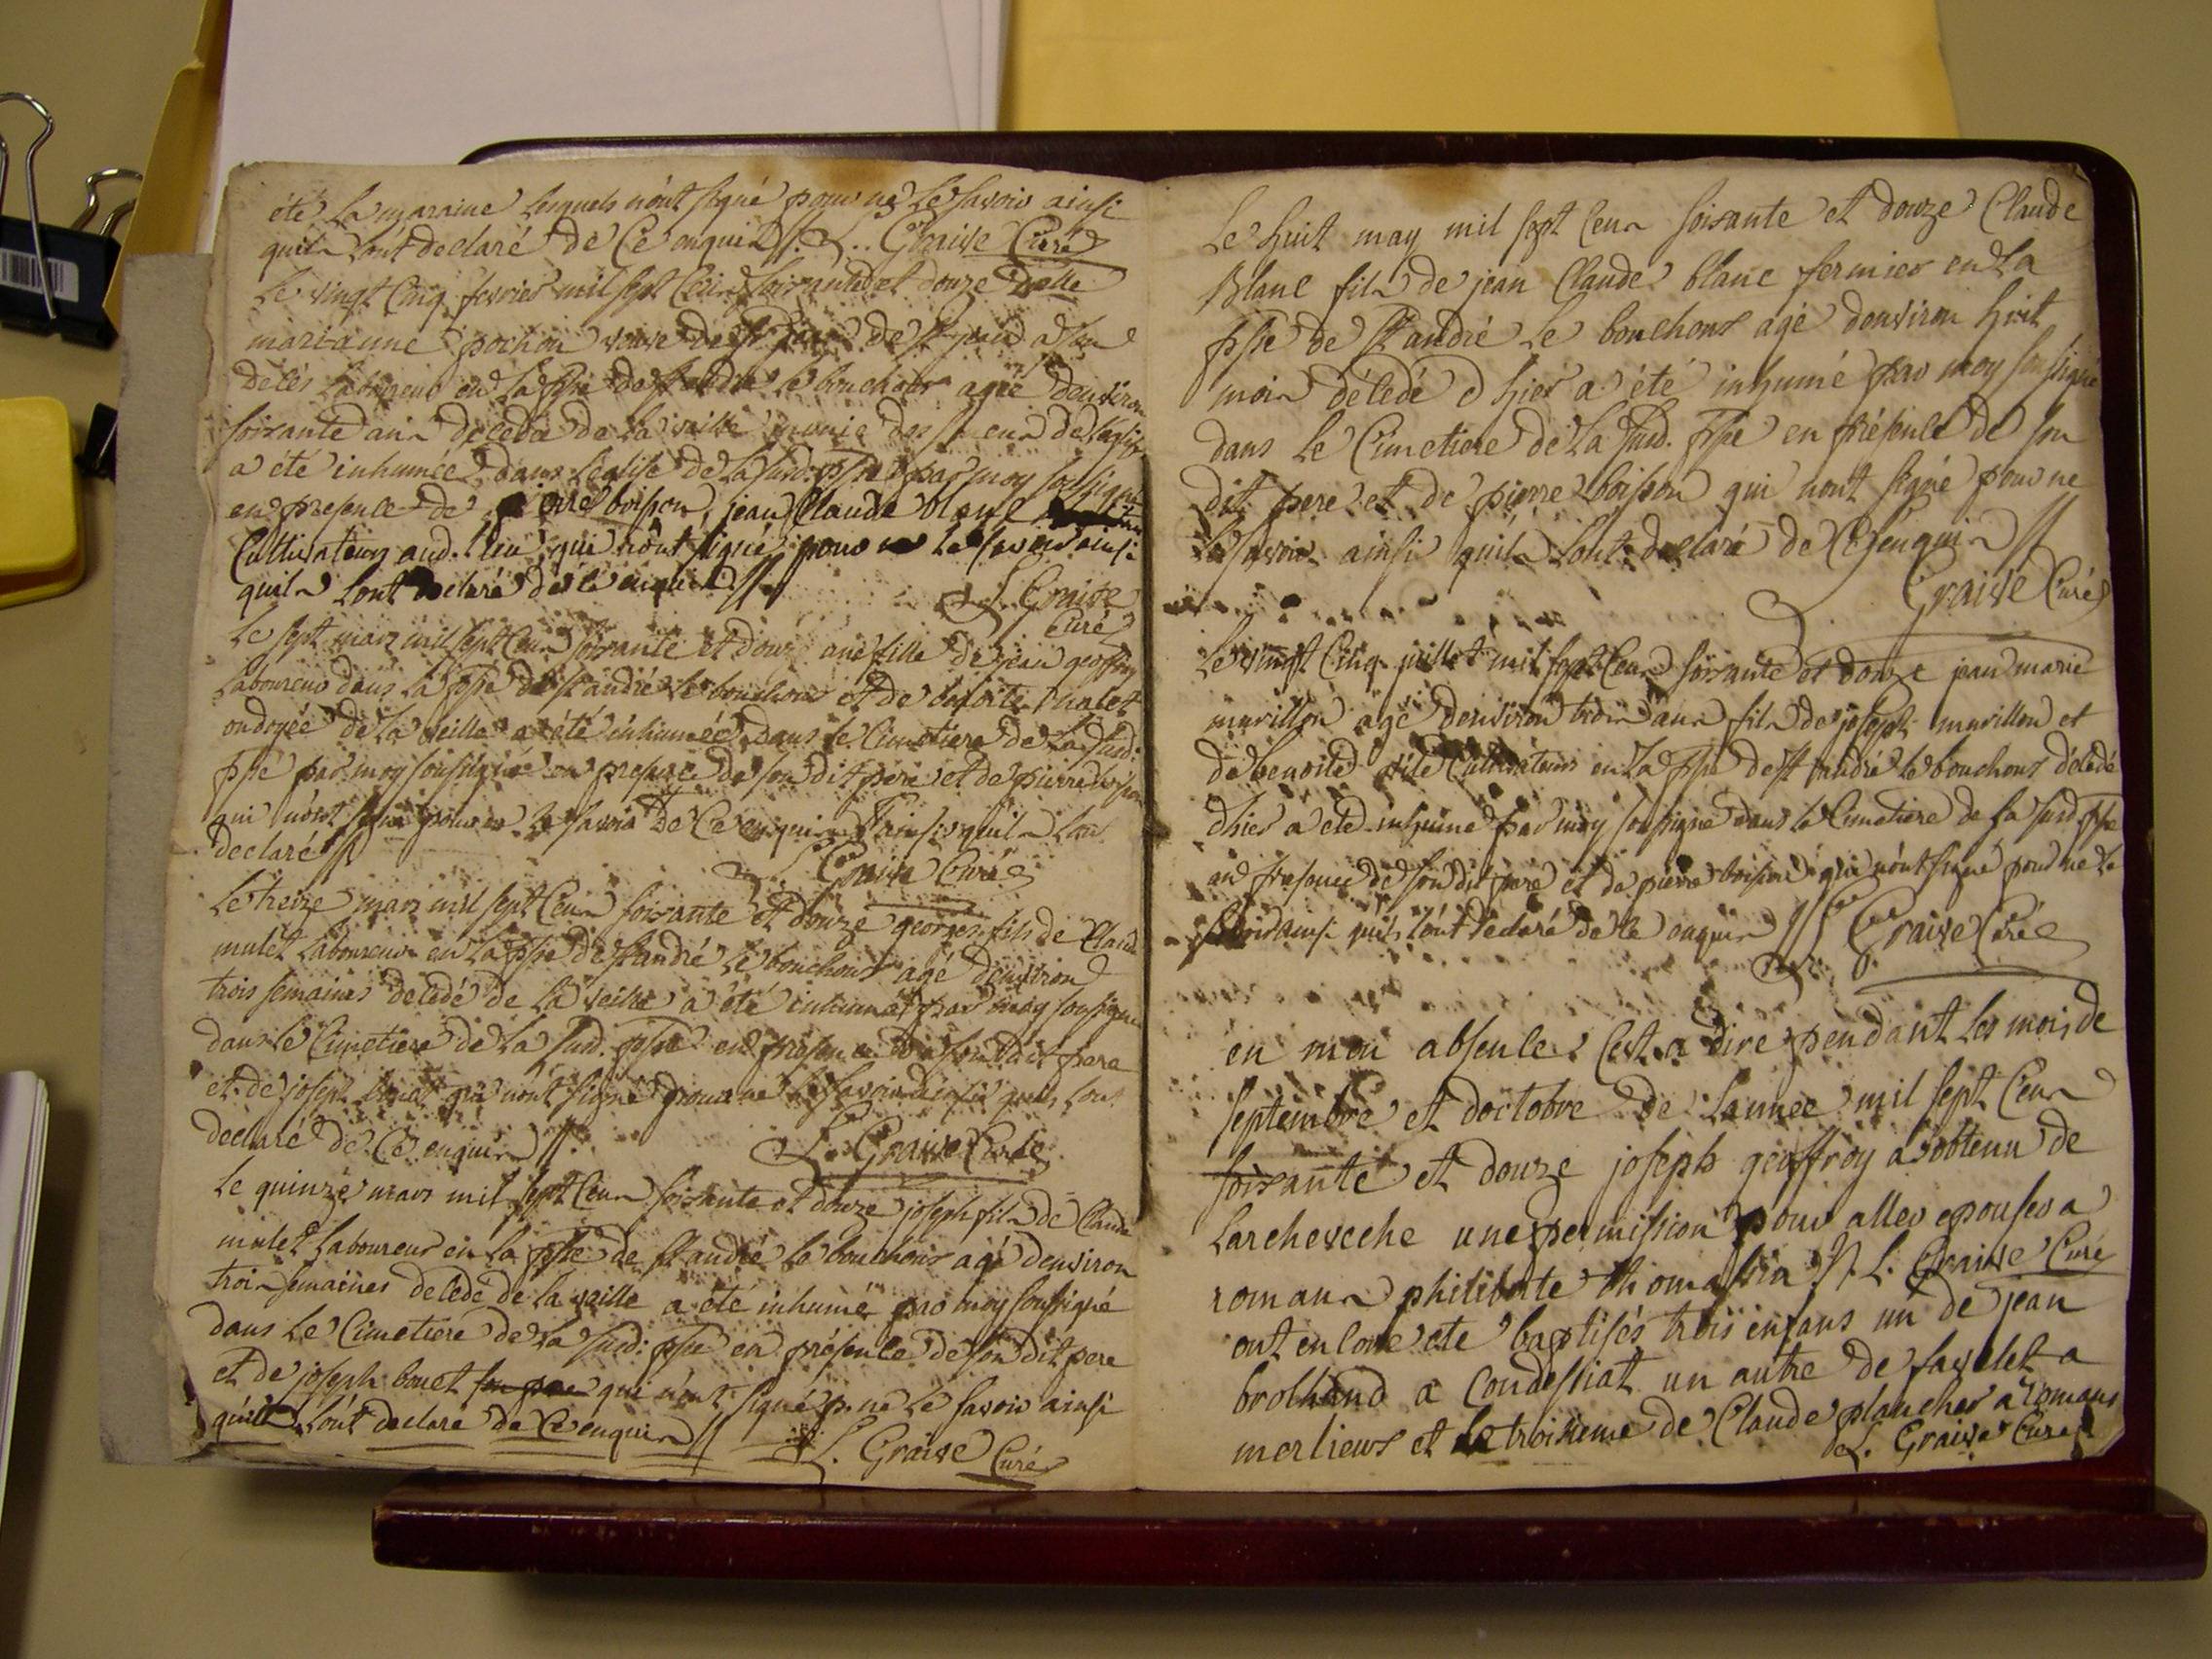 été la maraine lesquels n'ont signé pour ne le savoir ainsi
quils l'ont declaré de ce enquis //. L. Graise Curé
le vingt cinq fevrier mil sept cens soixante et douze
marianne pochon veuve de
laboureur en la psse de st andré le bouchoux agée denviron
soixante ans decedée de la veille munie des de leglise
a été inhumée dans l'eglise de la susd. psse par moy soussigné
en presence de boisson, jean Claude blanc
Cultivateurs aud. lieu qui n'ont signé pour ne le savoir ainsi
quils l'ont declaré de ce enquis //
L. Graise
Curé
le sept mars mil sept cens soixante et douze une fille de jean geoffroy
laboureur dans la psse de st andré le bouchoux et de chalet
ondoyée de la veille a été inhumée dans le Cimetiere de la susd.
psse par moy soussigné en presence de son dit pere et de pierre boisson
qui n'ont signé pour ne le savoir de ce enquis ainsi quils l'ont
declaré //
L. Graise Curé
le treize mars mil sept cens soixante et douze georges fils de Claude
mulet laboureur en la psse de st andré le bouchoux agé denviron
trois semaines decedé de la veille a été inhumé par moy soussigné
dans le Cimetiere de la susd. psse en presence de son dit pere
et de joseph bouet qui n'ont signé pour ne le savoir ainsi quils l'ont
declaré de ce enquis //.
L. Graise Curé
le quinze mars mil sept cens soixante et douze joseph fils de Claude
mulet laboureur en la psse de st andré le bouchoux agé denviron
trois semaines decedé de la veille a été inhumé par moy soussigné
dans le Cimetiere de la susd: psse en présence de son dit pere
et de joseph bouet son pere qui n'ont signé p. ne le savoir ainsi
quils l'ont declaré de ce enquis //
L. Graise Curé
le huit may mil sept cens soixante et douze Claude
Blanc fils de jean Claude blanc fermier en la
psse de st andré le bouchoux agé denviron huit
mois décedé d'hier a été inhumé par moy soussigné
dans le Cimetiere de la susd. psse en présence de son
dit pere et de pierre boisson qui n'ont signé pour ne
le savoir ainsi quils l'ont declaré de ce enquis //
Graise Curé
le vingt cinq juillet mil sept cens soixante et douze jean marie
murillon agé denviron trois ans fils de joseph murillon et
de benoite Cultivateurs en la psse de st andré le bouchoux décedé
dhier a été inhumé par moy soussigné dans le Cimetiere de la susd psse
en presence de son dit pere et de pierre boisson qui n'ont signé pour ne le
savoir ainsi quils l'ont declaré de ce enquis //
Graise Curé
en mon absence c'est a dire pendant les mois de
septembre et doctobre de lannée mil sept cens
soixante et douze joseph geoffroy a obtenu de
larcheveche une permission pour aller epouser a
romans philiberte thomassin //. L. Graise Curé
ont encore été baptisés trois enfans un de jean
brolhand a Condessiat un autre de favelet a
merlieux et le troisieme de Claude plancher a romans
L. Graise Curé